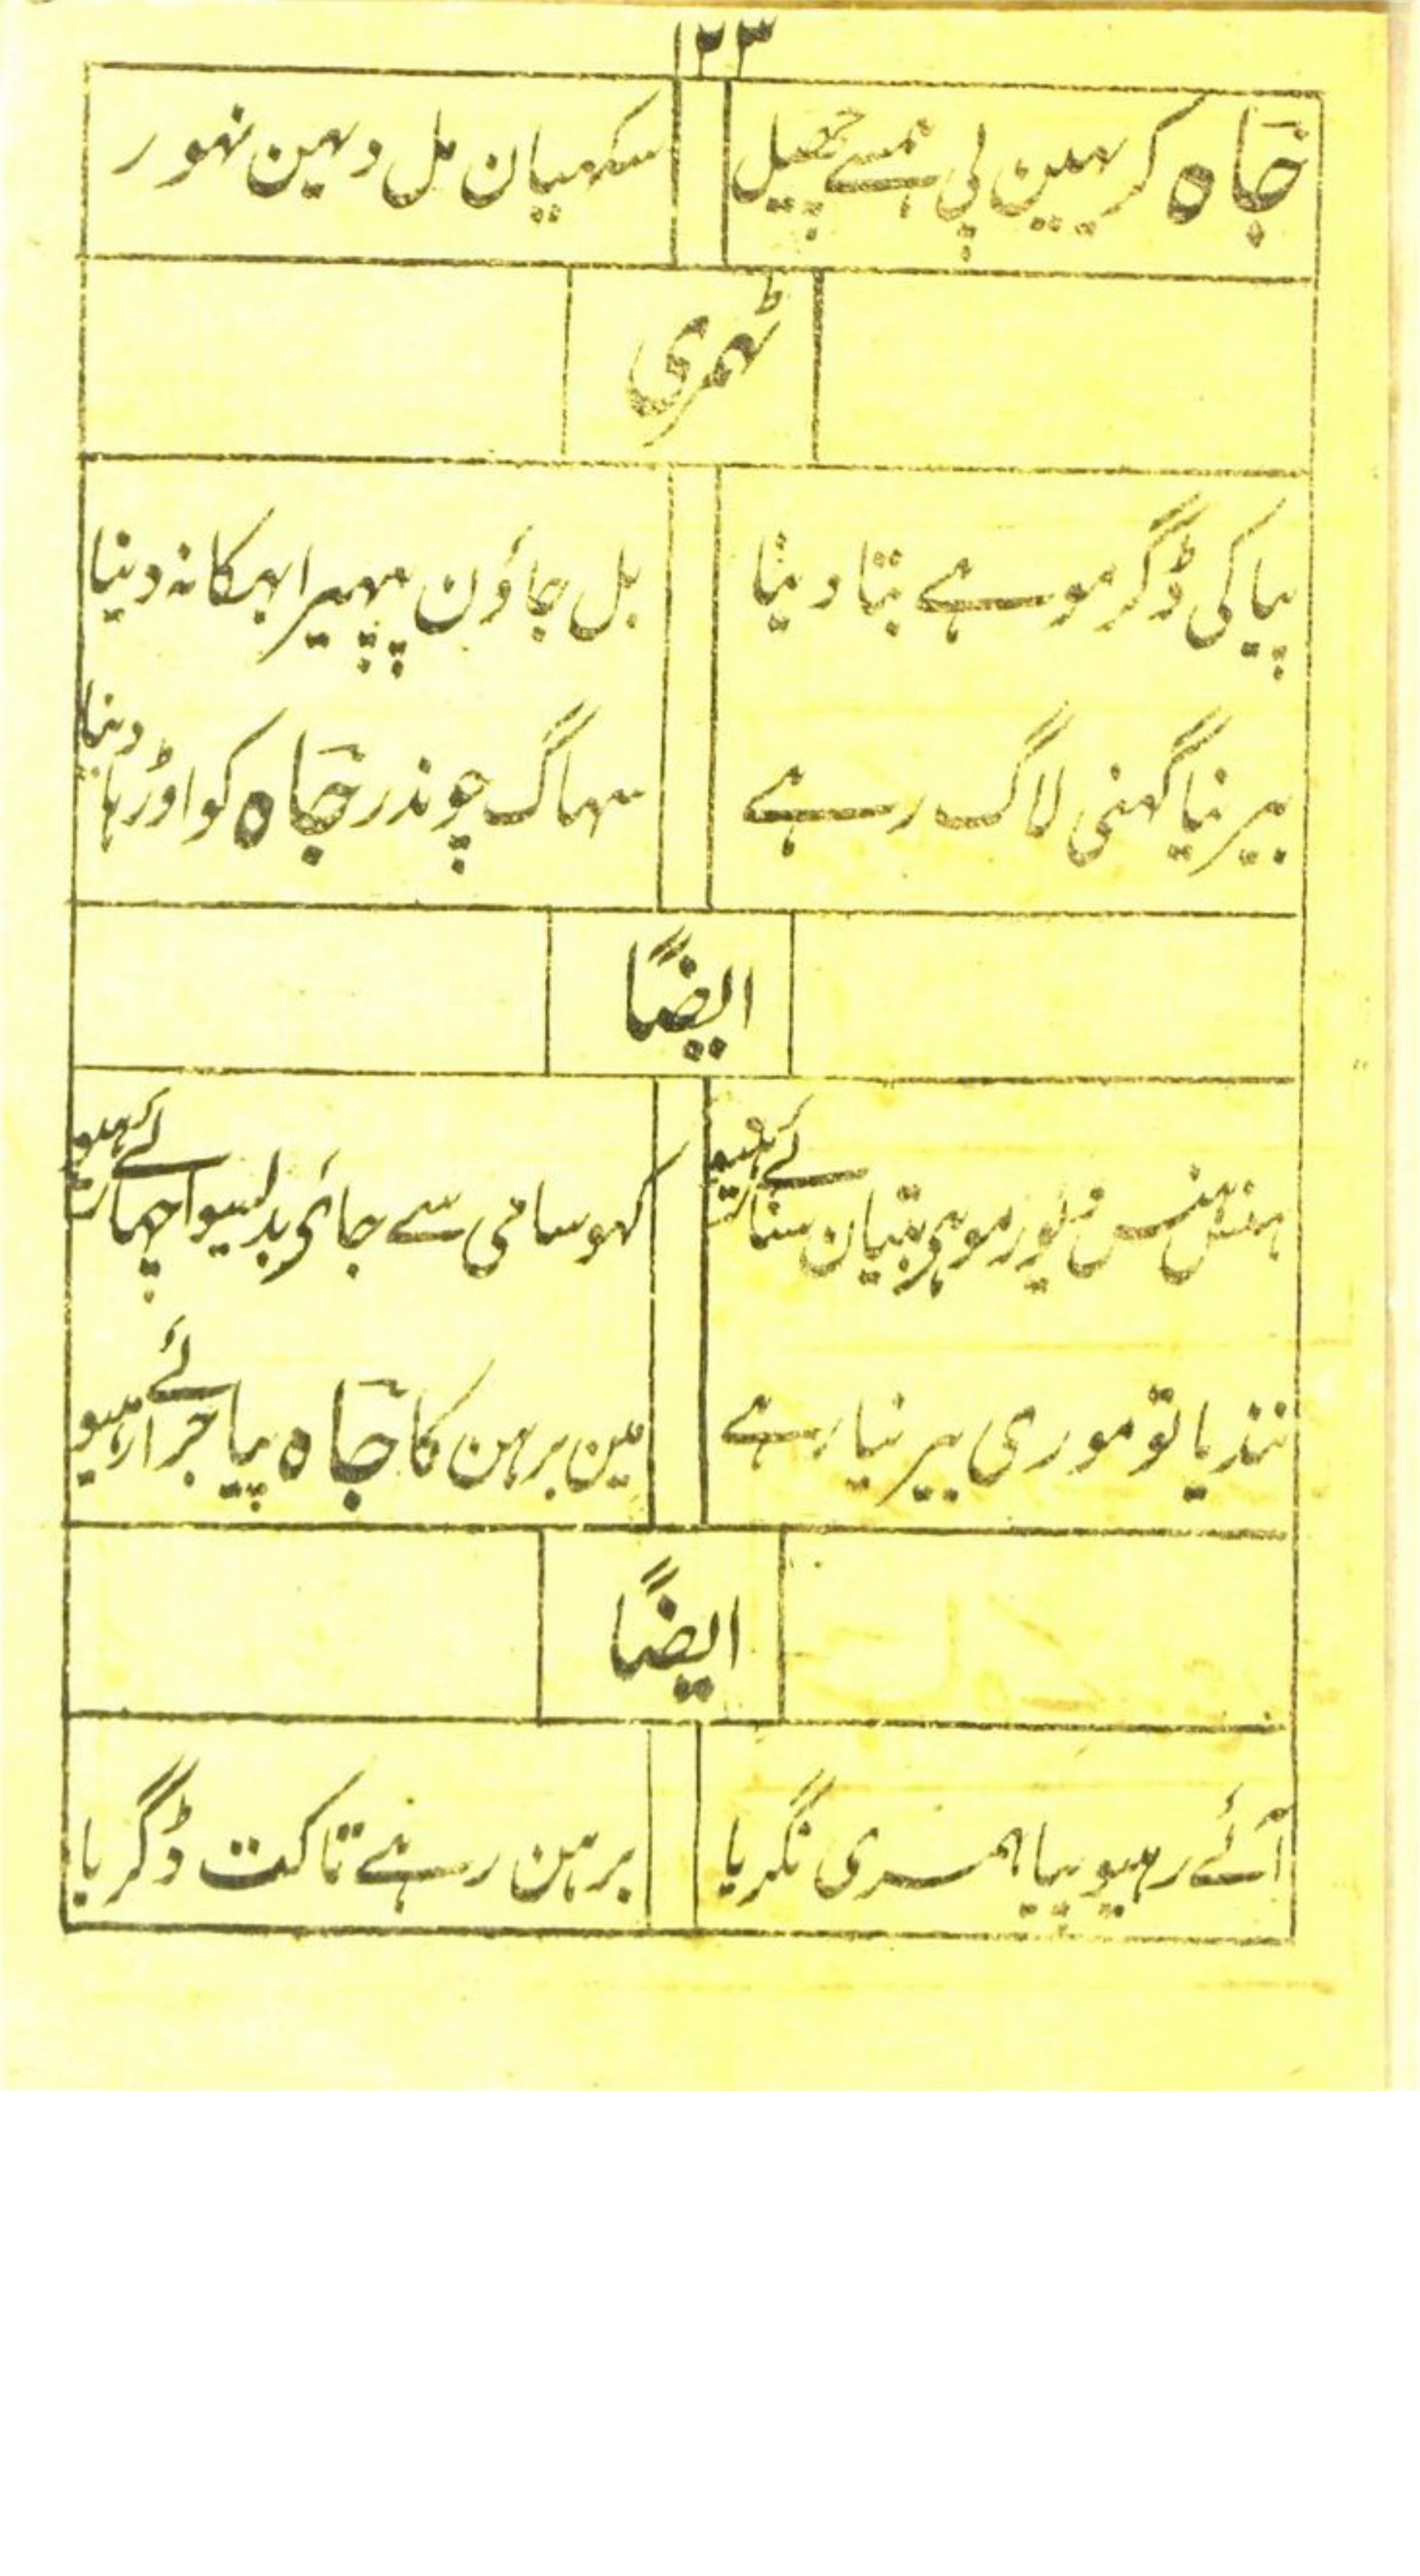 ۱۲۳
جاہ کرہین پی ہمسے چھیل
سکہیان مل دہین نہور
ٹھمری
پیا کی ڈگر موہے بتا دینا
بل جاؤن پپہیرا بہکا نہ دینا
بیرنیا گہنی لاگ رہے
سہاگ چوندر جاہ کو اوڑہا دینا
ایضًا
ہنس ہنس موہی بتیان سنائے رہیو
کہو سامی سے جائی بدلیوا چہائے رہیو
نندیا تو موری بیرنیا رہے
مین برہن کا جاہ پیا جرائے رہیو
ایضًا
آئے رہیو پیا ہمری نگریا
برہن رہے تاکت ڈگریا